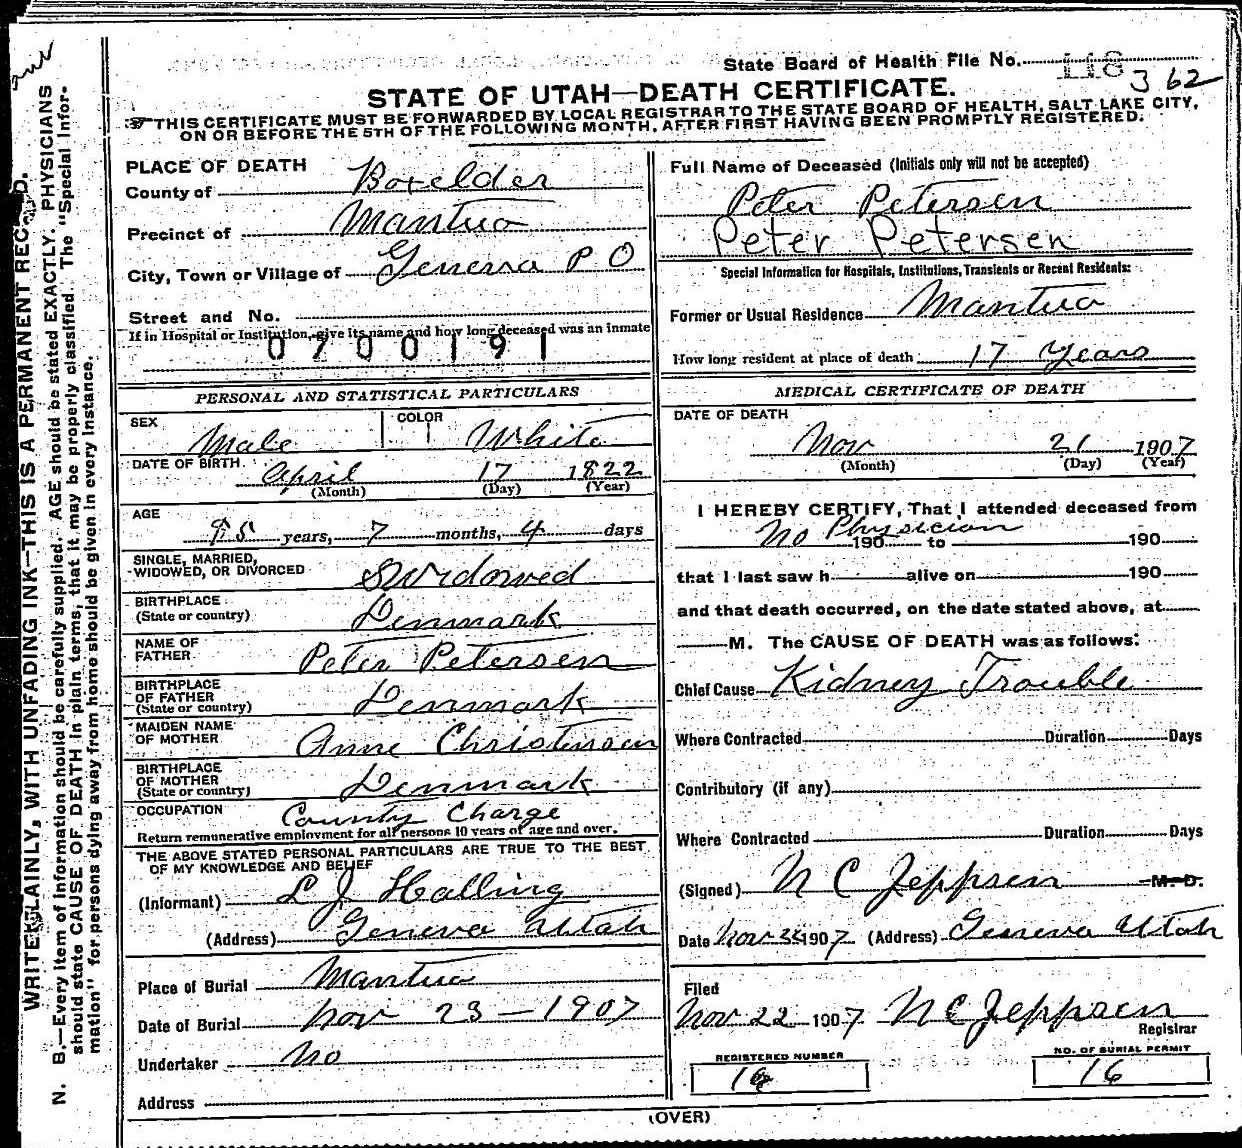 State Board of Health File No. 118
362
STATE OF UTAH—DEATH CERTIFICATE.
THIS CERTIFICATE MUST BE FORWARDED BY LOCAL REGISTRAR TO THE STATE BOARD OF HEALTH, SALT LAKE CITY,
ON OR BEFORE THE 5TH OF THE FOLLOWING MONTH, AFTER FIRST HAVING BEEN PROMPTLY REGISTERED.
WRITE PLAINLY, WITH UNFADING INK—THIS IS A PERMANENT RECORD.
N. B.—Every item of information should be carefully supplied. AGE should be stated EXACTLY. PHYSICIANS
should state CAUSE OF DEATH in plain terms, that it may be properly classified. The "Special Infor-
mation" for persons dying away from home should be given in every instance.
PLACE OF DEATH
County of Boxelder
Precinct of Mantua
City, Town or Village of Geneva P O
Street and No.
If in Hospital or Institution, give its name and how long deceased was an inmate
0700191
PERSONAL AND STATISTICAL PARTICULARS
SEX Male COLOR White
DATE OF BIRTH April 17 1822
(Month) (Day) (Year)
AGE
85 years, 7 months, 4 days
SINGLE, MARRIED,
WIDOWED, OR DIVORCED Widowed
BIRTHPLACE
(State or country) Denmark
NAME OF
FATHER Peter Petersen
BIRTHPLACE
OF FATHER
(State or country) Denmark
MAIDEN NAME
OF MOTHER Anne Christensen
BIRTHPLACE
OF MOTHER
(State or country) Denmark
OCCUPATION County Charge
Return remunerative employment for all persons 10 years of age and over.
THE ABOVE STATED PERSONAL PARTICULARS ARE TRUE TO THE BEST
OF MY KNOWLEDGE AND BELIEF
(Informant) L J Halling
(Address) Geneva Utah
Place of Burial Mantua
Date of Burial Nov 23—1907
Undertaker No
Address
Full Name of Deceased (Initials only will not be accepted)
Peter Petersen
Peter Petersen
Special Information for Hospitals, Institutions, Transients or Recent Residents:
Former or Usual Residence Mantua
How long resident at place of death 17 Years
MEDICAL CERTIFICATE OF DEATH
DATE OF DEATH
Nov 21 1907
(Month) (Day) (Year)
I HEREBY CERTIFY, That I attended deceased from
No Physician 190 to 190
that I last saw h alive on 190
and that death occurred, on the date stated above, at
M. The CAUSE OF DEATH was as follows:
Chief Cause Kidney Trouble
Where Contracted Duration Days
Contributory (if any)
Where Contracted Duration Days
(Signed) N C Jeppsen M. D.
Date Nov 1907 (Address) Geneva Utah
Filed
Nov 22 1907 N C Jeppsen
Registrar
REGISTERED NUMBER
NO. OF BURIAL PERMIT
16
(OVER)